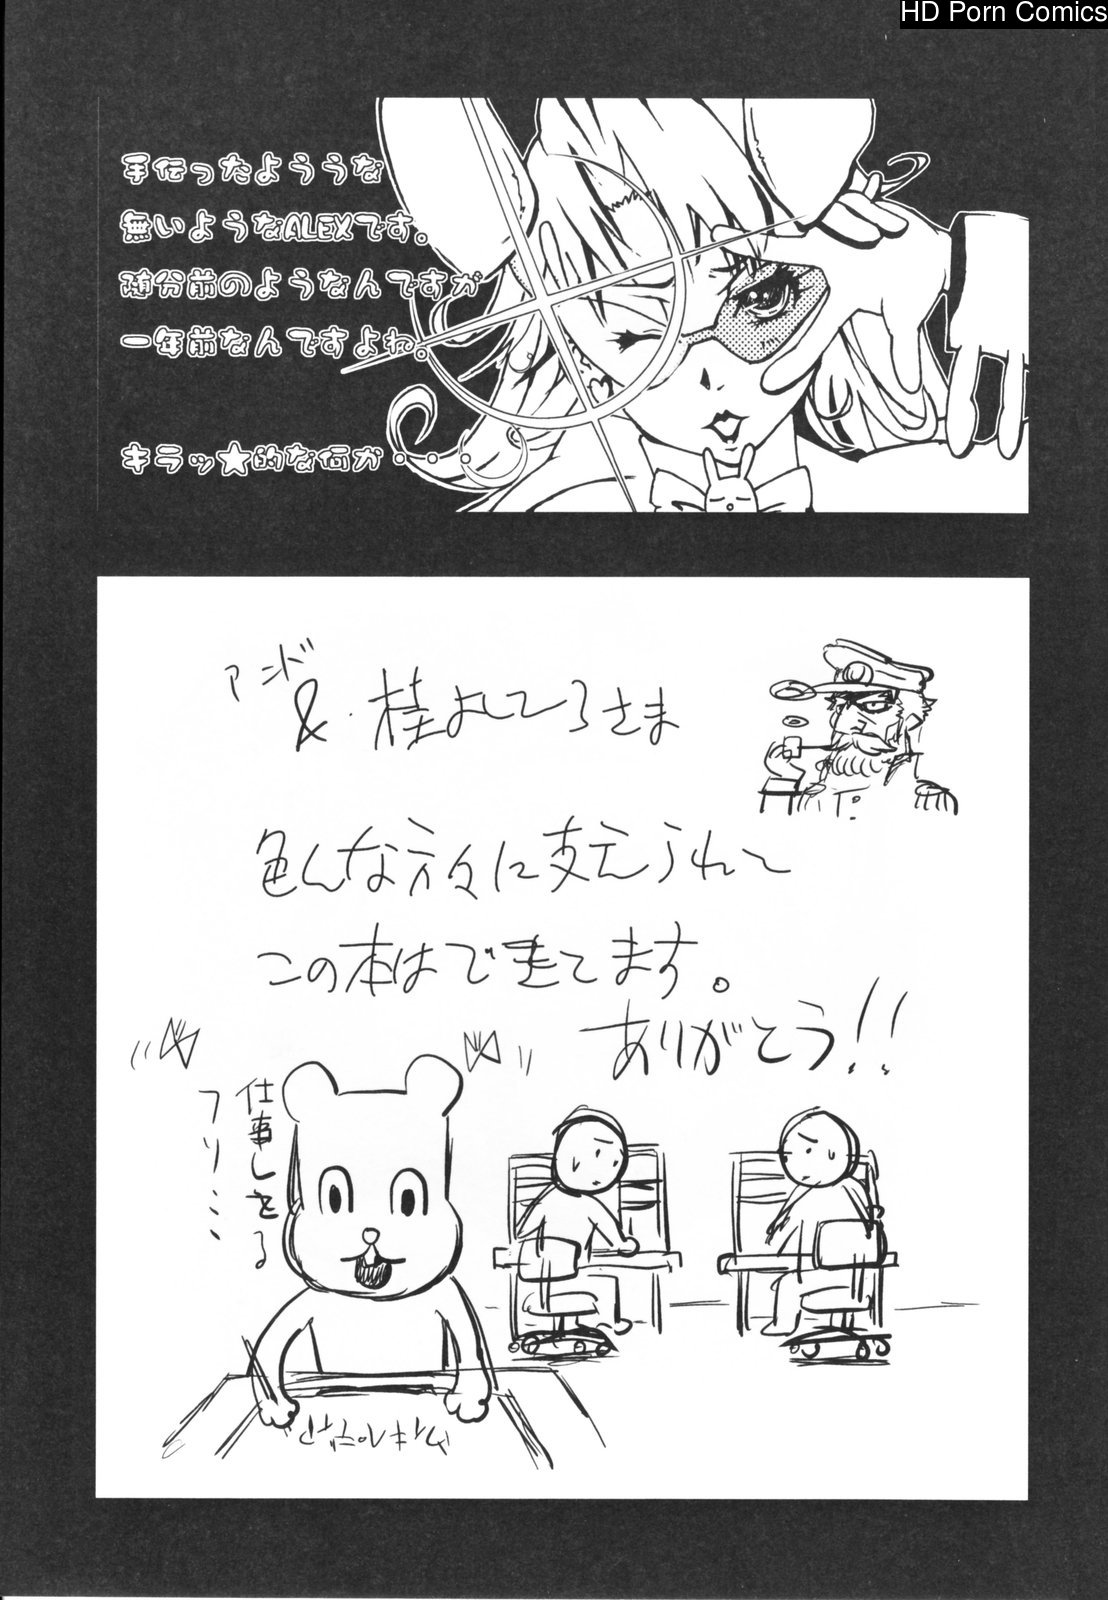 HD Porn Comics
手伝ったよううな
無いようなALEXです。
随分前のようなんですが
一年前なんですよね。
キラッ★的な何か・・・。
アンド
&・桂よしひろさま
色んな方々に支えられて
この本はできてます。
ありがとう!!
仕事してる
フリミミ